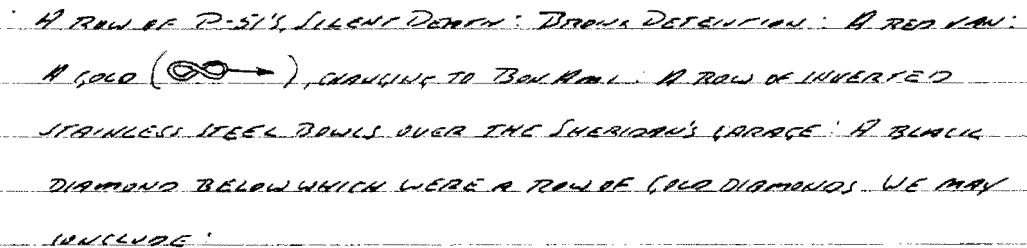 : A ROW OF P-51'S, SILENT DEATH : BRONX DETENTION : A RED VAN :
A GOLD ( ), CHANGING TO BON AMI : A ROW OF INVERTED
STAINLESS STEEL BOWLS OVER THE SHERIDAN'S GARAGE : A BLACK
DIAMOND BELOW WHICH WERE A ROW OF GOLD DIAMONDS. WE MAY
CONCLUDE :